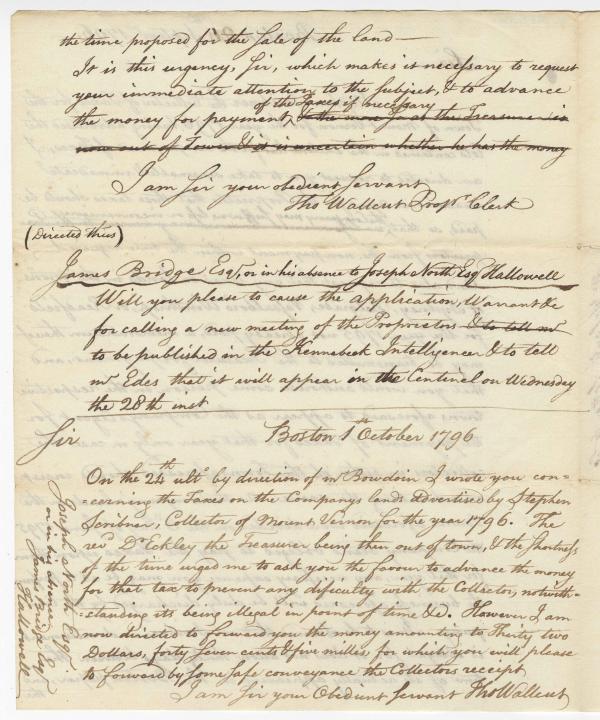 the time proposed for the Sale of the land—
It is this urgency, Sir, which makes it necessary to request
your immediate attention to the subject, & to advance
of the Taxes if necessary
the money for payment, & the more so as the Treasurer is
now out of Town & it is uncertain whether he has the money
I am Sir your obedient Servant
Tho Wallcut Propr. Clerk
(Directed thus)
James Bridge Esqr, or in his absence to Joseph North Esq Hallowell
Will you please to cause the application, Warrant &c
for calling a new meeting of the Proprietors & to tell mr
to be published in the Kennebeck Intelligencer & to tell
mr Edes that it will appear in the Centinel on Wednesday
the 28th inst
Boston 1st October 1796
Sir
On the 24th ulto by direction of mr Bowdoin I wrote you con-
=cerning the Taxes on the Companys lands advertised by Stephen
Scribner, Collector of Mount Vernon for the year 1796. The
revd Dr Eckley the Treasurer being then out of town, & the shortness
of the time urged me to ask you the favour to advance the money
for that tax to prevent any dificulty with the Collector, notwith=
=standing its being illegal in point of time &c. However I am
now directed to forward you the money amounting to Thirty two
Dollars, forty Seven cents & five mills, for which you will please
to forward by some safe conveyance the Collectors receipt
I am Sir your Obedient Servant Tho Wallcut
Joseph North Esqr
or in his absence
James Bridge Esqr
Hallowell